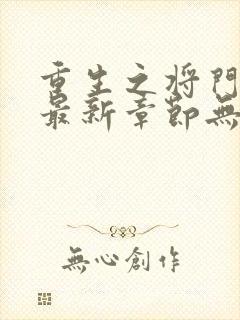 重生之将門
最新章節無
無心創作